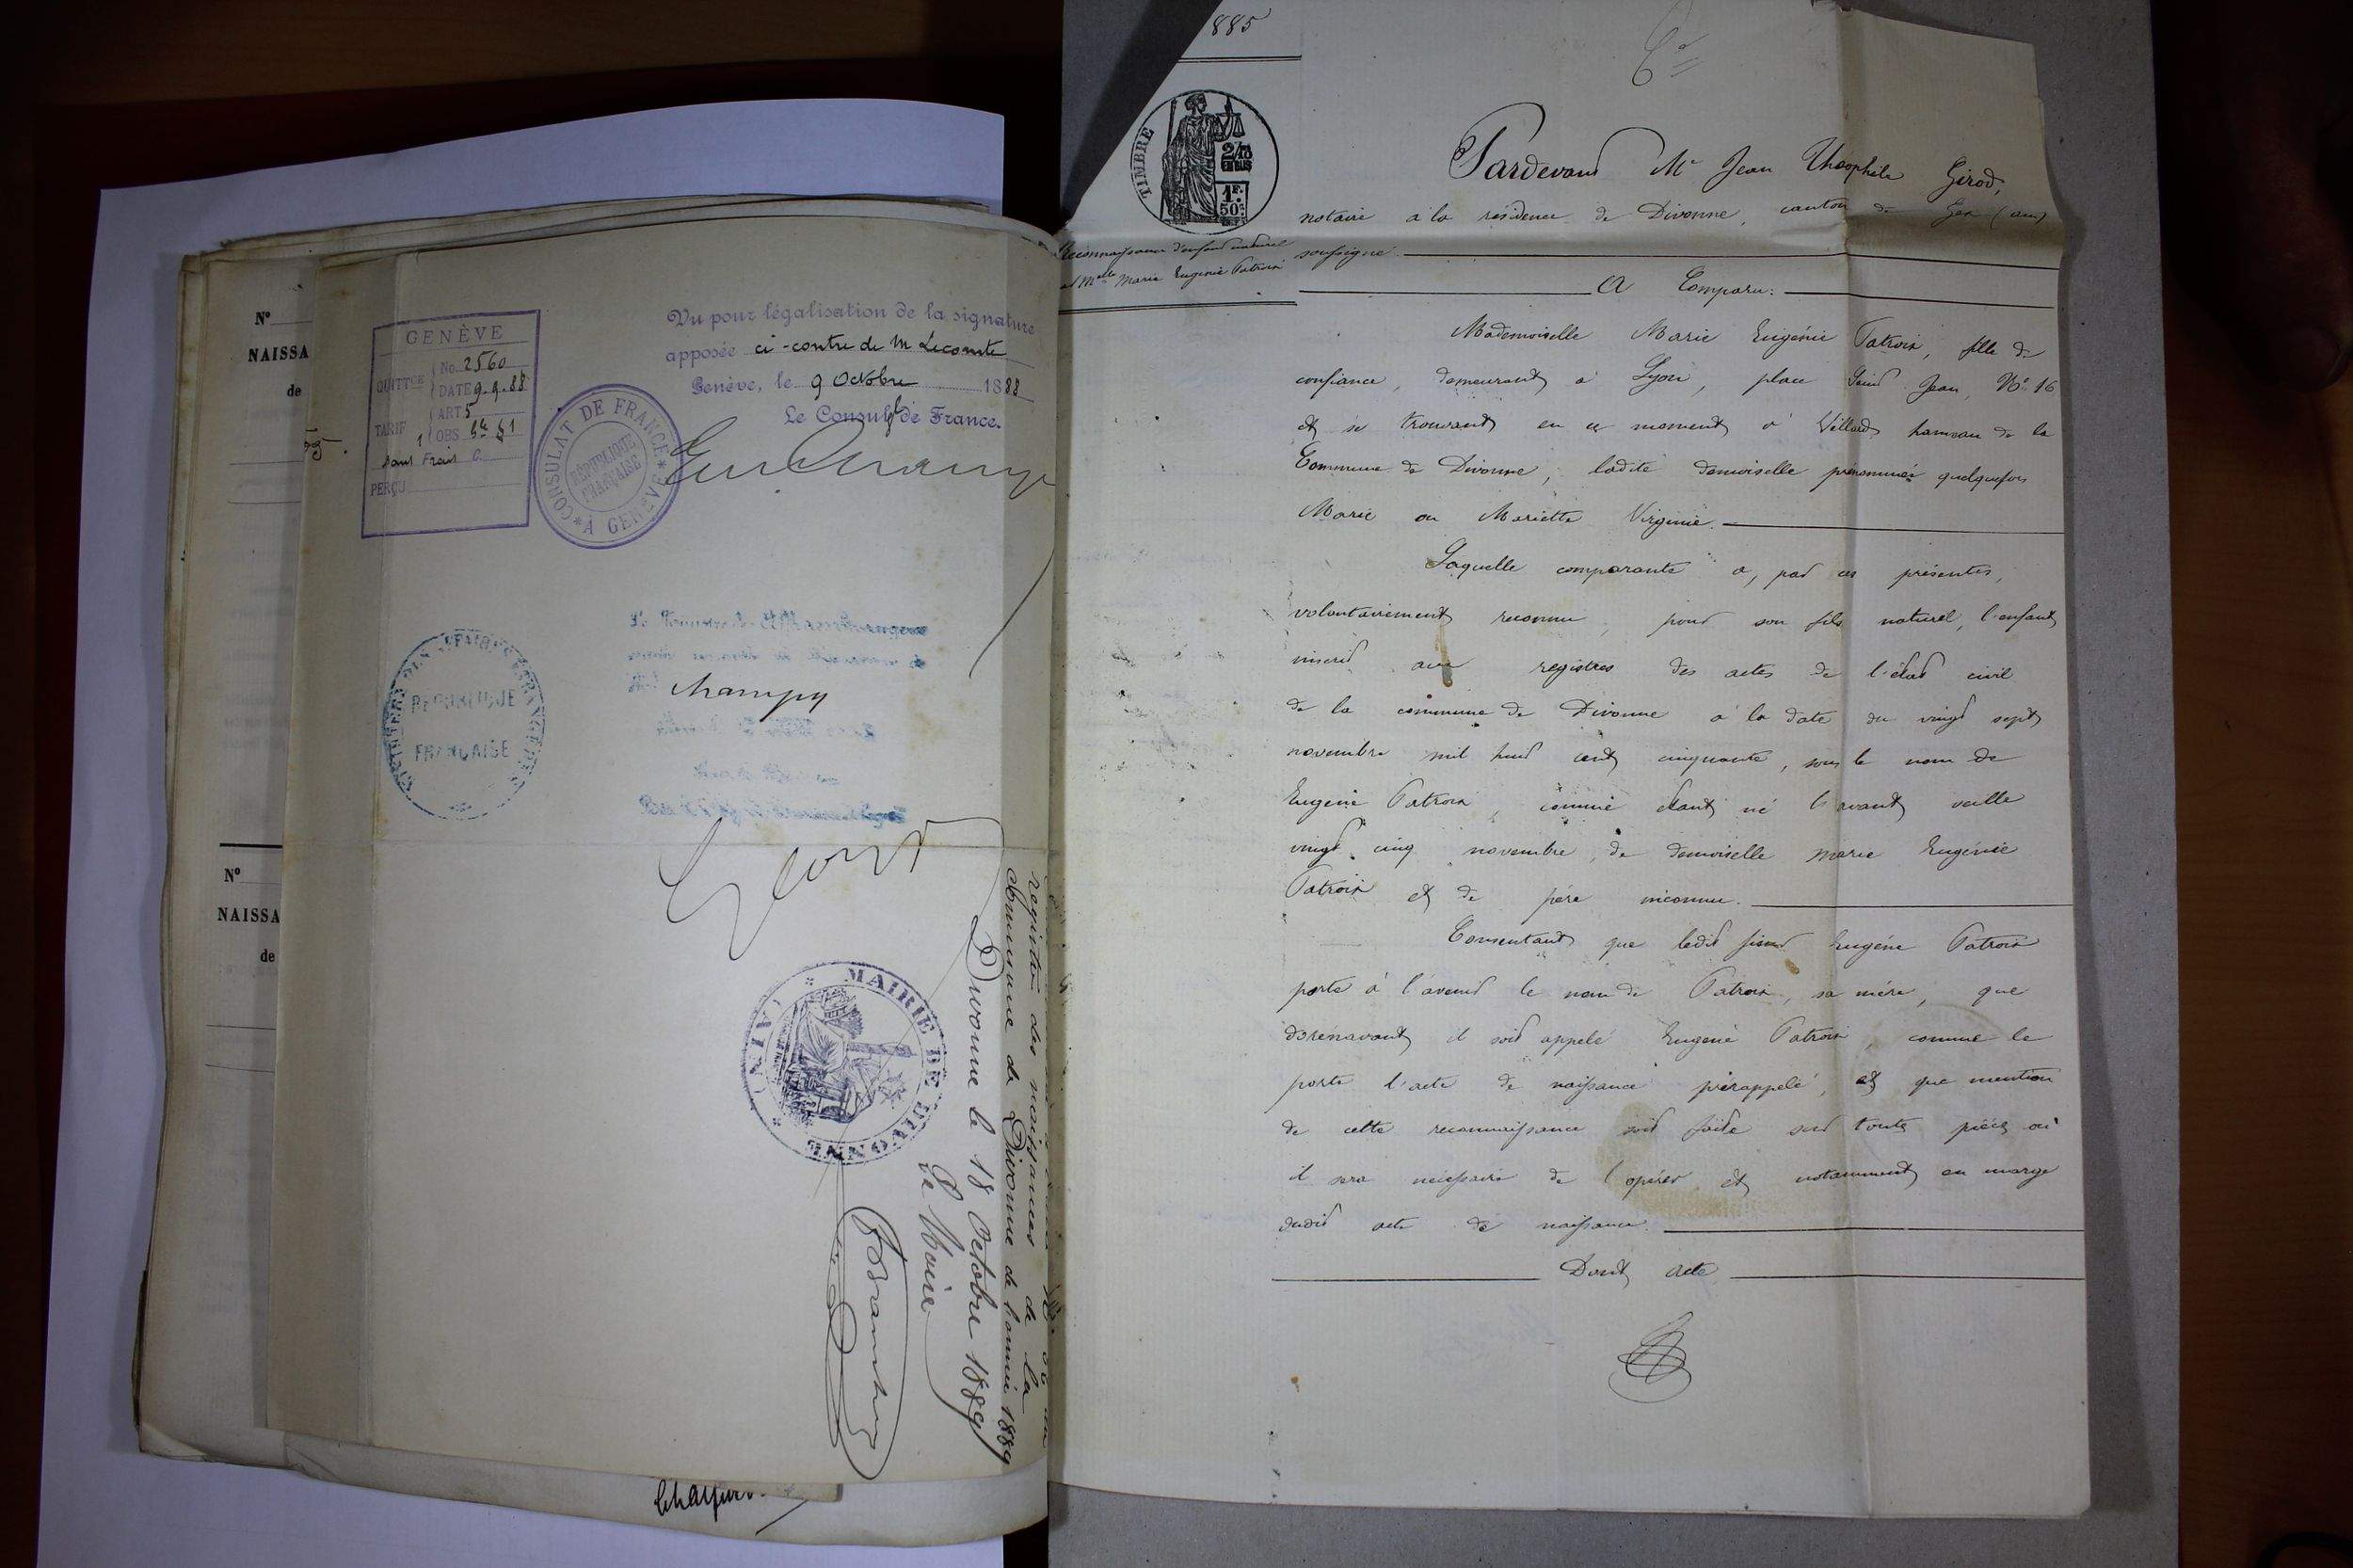 N°
NAISSA
de
N°
NAISSA
de
GENÈVE
QUITTCE
No. 2560
DATE 9.9.88
TARIF
ART 5
OBS
Sans Frais
PERÇU
Vu pour légalisation de la signature
apposée ci-contre de M Lecomte
Genève, le 9 Octobre 1888
Le Consul de France.
CONSULAT DE FRANCE
* À GENÈVE *
RÉPUBLIQUE
FRANÇAISE
AFFAIRES ÉTRANGÈRES
REPUBLIQUE
FRANÇAISE
Champy
registre des naissances de la
commune de Divonne de l'année 1889
Divonne le 18 Octobre 1889
Le Maire
MAIRIE DE DIVONNE
(AIN)
885
TIMBRE
2/10
EN SUS
1F.
50c
Reconnaissance d'enfant naturel
Melle Marie Eugénie Patroix
Pardevant Me Jean Théophile Girod,
notaire à la résidence de Divonne, canton de Gex (ain)
soussigné.
A Comparu:
Mademoiselle Marie Eugénie Patroix, fille de
confiance, demeurant à Lyon, place Saint Jean, No 16
et se trouvant en ce moment à Villard hameau de la
Commune de Divonne, ladite demoiselle prénommée quelquefois
Marie ou Mariette Virginie.
Laquelle comparante a, par ces présentes,
volontairement reconnu, pour son fils naturel, l'enfant
inscrit aux registres des actes de l'état civil
de la commune de Divonne à la date du vingt sept
novembre mil huit cent cinquante, sous le nom de
Eugène Patroix, comme étant né l'avant veille
vingt cinq novembre, de demoiselle Marie Eugénie
Patroix et de père inconnu.
Consentant que ledit Eugène Patroix
porte à l'avenir le nom de Patroix, sa mère, que
dorénavant il soit appelé Eugène Patroix, comme le
porte l'acte de naissance prérappelé, et que mention
de cette reconnaissance soit faite sur toutes pièces où
il sera nécessaire de l'opérer et notamment en marge
dudit acte de naissance.
Dont acte